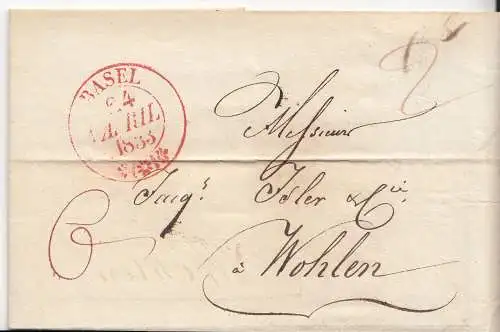 BASEL
24
APRIL
1835
Messieurs
Jacq.s Isler & Cie.
à Wohlen
6